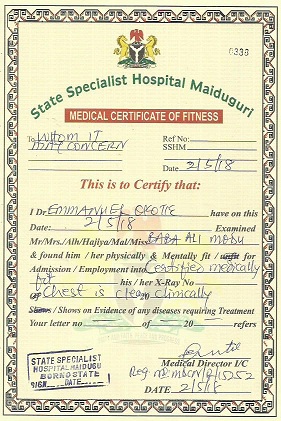 0336
State Specialist Hospital Maiduguri
MEDICAL CERTIFICATE OF FITNESS
To WHOM IT
MAY CONCERN
Ref No:
SSHM
Date 2/5/18
This is to Certify that:
I Dr EMMANUEL OKOTIE have on this
Date: 2/5/18 Examined
Mr/Mrs./Alh/Hajiya/Mal/Miss BABA ALI MODU
& found him / her physically & Mentally fit / unfit for
Admission / Employment into Certified medically
fit his / her X-Ray No
Of Chest is clear clinically 20
Shows / Shows on Evidence of any diseases requiring Treatment
Your letter no of 20 refers
STATE SPECIALIST
HOSPITAL MAIDUGU
BORNO STATE
SIGN DATE
Medical Director I/C
Reg no:
DATE 2/5/18